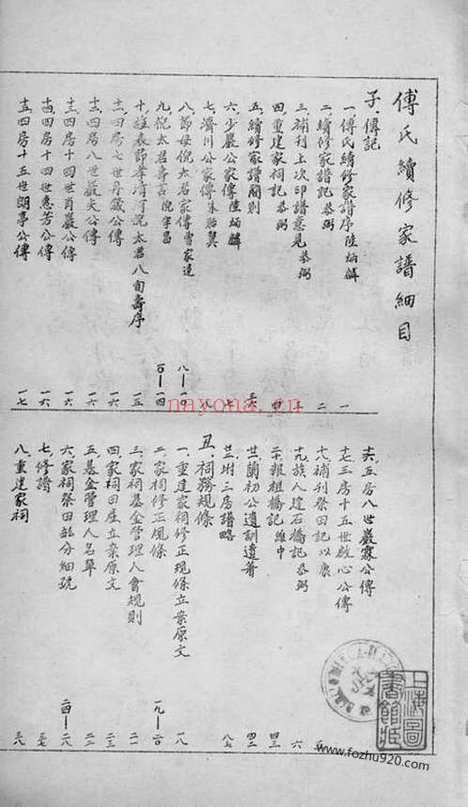 傅氏續修家譜細目
子、傳記
一傅氏續修家譜序 陸炳麟 一
二、續修家譜記 恭弼 二
三、補刊上次印譜意見 恭弼
四、重建家祠記 恭弼 四
五、續修家譜簡則
六、少巖公家傳 陸炳麟 七
七、濟川公家傳 朱貽翼
八、節母倪太君家傳 曹家達 八—一〇
九、倪太君壽言 倪宇昌 一〇—一四
十、旌表節孝清河沈太君八旬壽序 一五
十一、四房七世丹巖公傳 一六
十二、四房八世巖夫公傳 一六
十三、四房十四世肖巖公傳 一六
十四、四房十四世惠芳公傳 一六
十五、四房十五世頤亭公傳 一七
十六、五房八世巖霖公傳
十七、三房十五世啟心公傳
十八、補刊祭田記 以康
十九、族人建石橋記 恭弼 六
二十、報祖橋記 維中
廿一、蘭初公遺訓遺著
廿二、附三房譜略
丑、祠務規條
一、重建家祠修正規條立案原文 一八
二、家祠修正規條 一九—二〇
三、家祠基金管理人會規則 二一
四、家祠田產立案原文 二三
五、基金管理人名單 二三
六、家祠祭田部分細號 二四—二八
七、修譜
八、重建家祠
上海圖書館藏
nayona.cn
www.fozhu920.com